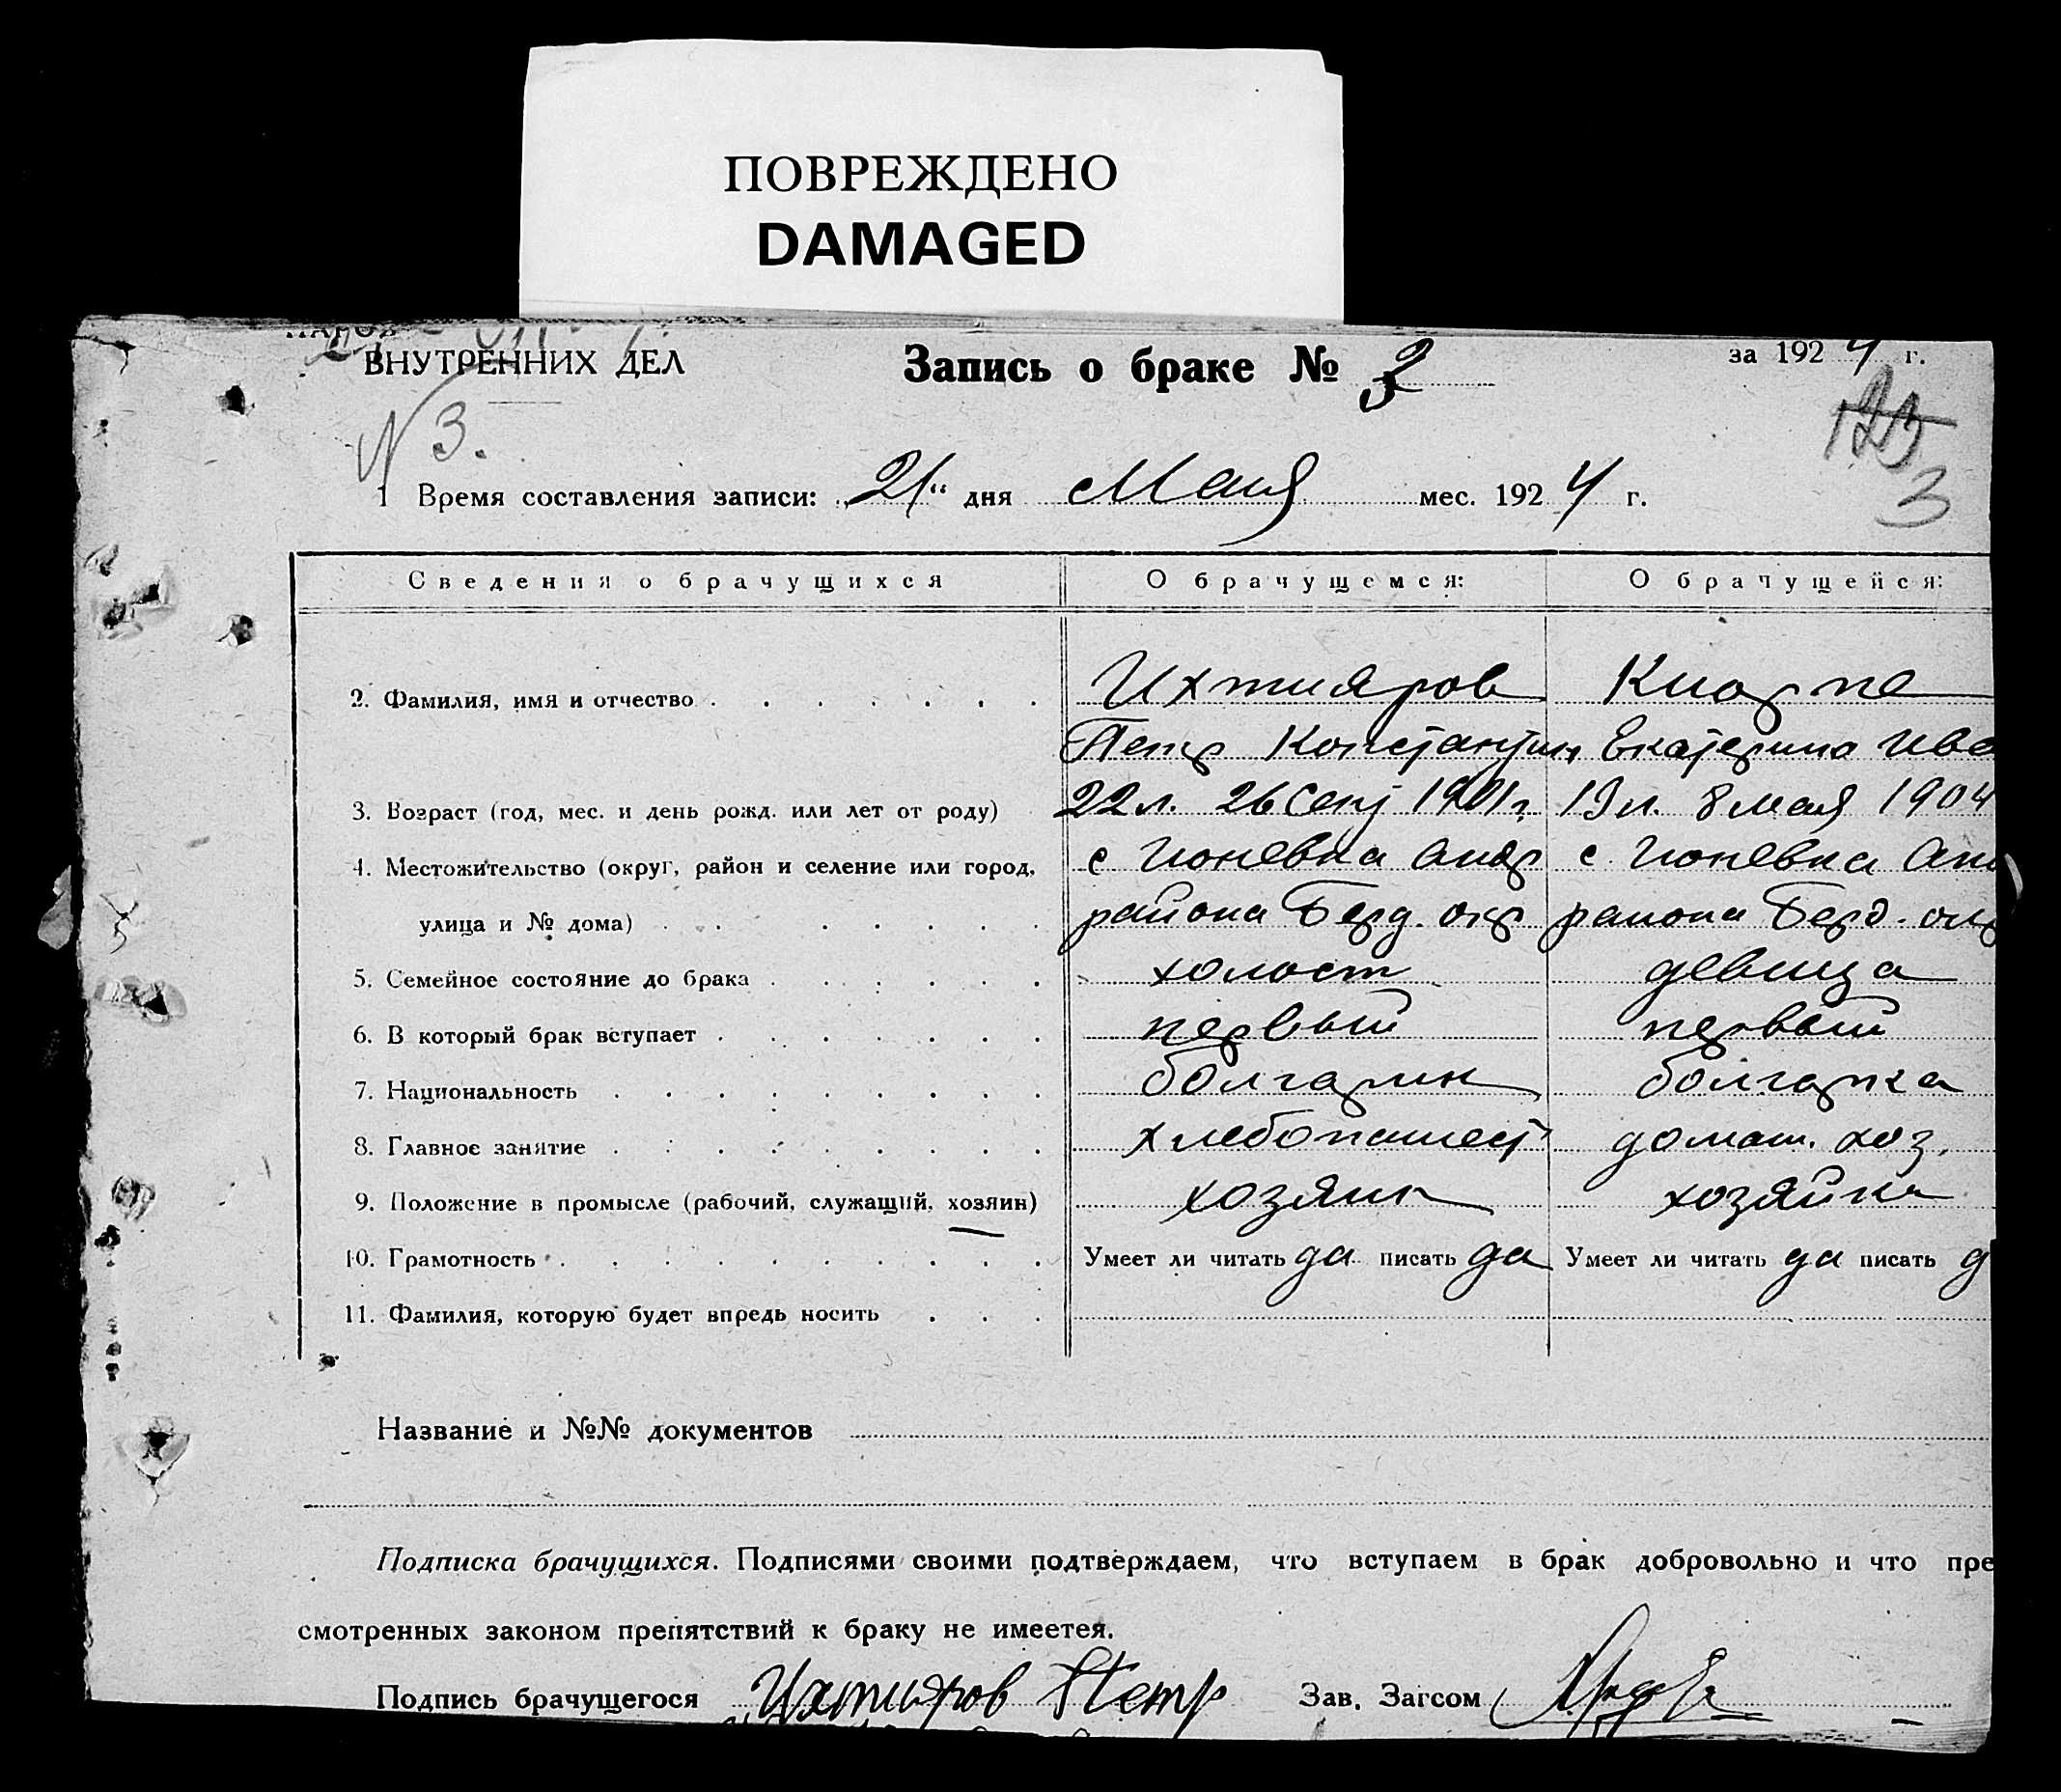 ПОВРЕЖДЕНО
DAMAGED
ВНУТРЕННИХ ДЕЛ
Запись о браке № 3
за 1924 г.
N 3.
123
3
1 Время составления записи: „21“ дня Мая мес. 1924 г.
Сведения о брачущихся О брачущемся: О брачущейся:
2. Фамилия, имя и отчество Ихтияров
Петр Константин Екатерина Ива
3. Возраст (год, мес. и день рожд. или лет от роду) 22 л. 26 Сент 1901 г. 19 л. 8 мая 1904
4. Местожительство (округ, район и селение или город, с Гюневка Андр с. Гюневка Ан
улица и № дома) района Берд. окр района Берд. окр
5. Семейное состояние до брака холост девица
6. В который брак вступает первый первый
7. Национальность болгарин болгарка
8. Главное занятие хлебопашест домаш. хоз.
9. Положение в промысле (рабочий, служащий, хозяин) хозяин хозяйка
10. Грамотность Умеет ли читать да писать да Умеет ли читать да писать д
11. Фамилия, которую будет впредь носить
Название и №№ документов
Подписка брачущихся. Подписями своими подтверждаем, что вступаем в брак добровольно и что пре
смотренных законом препятствий к браку не имеетея.
Подпись брачущегося Ихтияров Петр Зав. Загсом